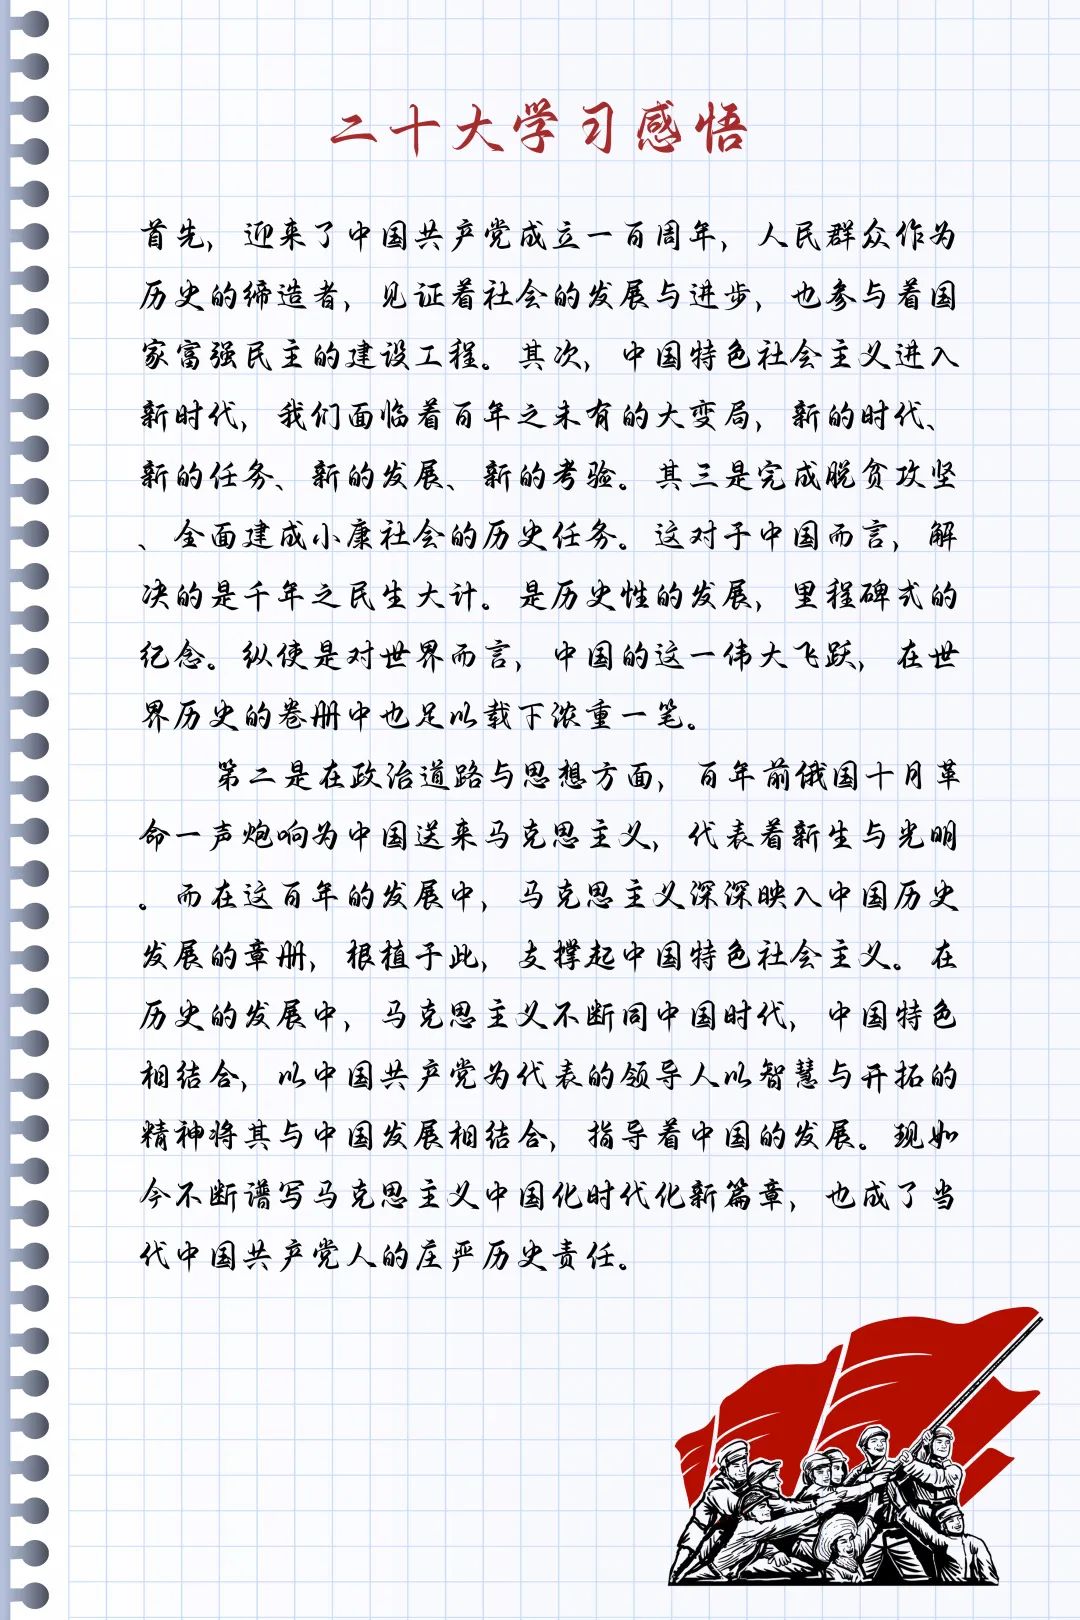 二十大学习感悟
首先，迎来了中国共产党成立一百周年，人民群众作为
历史的缔造者，见证着社会的发展与进步，也参与着国
家富强民主的建设工程。其次，中国特色社会主义进入
新时代，我们面临着百年之未有的大变局，新的时代、
新的任务、新的发展、新的考验。其三是完成脱贫攻坚
、全面建成小康社会的历史任务。这对于中国而言，解
决的是千年之民生大计。是历史性的发展，里程碑式的
纪念。纵使是对世界而言，中国的这一伟大飞跃，在世
界历史的卷册中也足以载下浓重一笔。
第二是在政治道路与思想方面，百年前俄国十月革
命一声炮响为中国送来马克思主义，代表着新生与光明
。而在这百年的发展中，马克思主义深深映入中国历史
发展的章册，根植于此，支撑起中国特色社会主义。在
历史的发展中，马克思主义不断同中国时代，中国特色
相结合，以中国共产党为代表的领导人以智慧与开拓的
精神将其与中国发展相结合，指导着中国的发展。现如
今不断谱写马克思主义中国化时代化新篇章，也成了当
代中国共产党人的庄严历史责任。